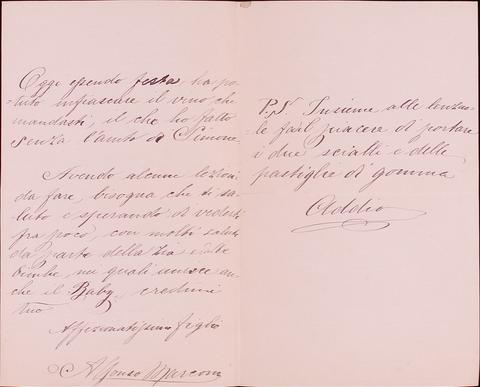 Oggi essendo festa ho po-
tuto infiascare il vino che
mandasti, il che ho fatto
senza l'aiuto di Simone.
Avendo alcune lezioni
da fare, bisogna che ti sa-
luto e sperando di vederti
fra poco, con molti saluti
da parte della zia e delle
bimbe, nei quali unisce an-
che il Baby, credimi
tuo
Affezionatissimo figlio
Alfonso Marconi
P.S. Insieme alle lenzuo-
le fai il piacere di portare
i due scialli e delle
pastiglie di gomma
Addio